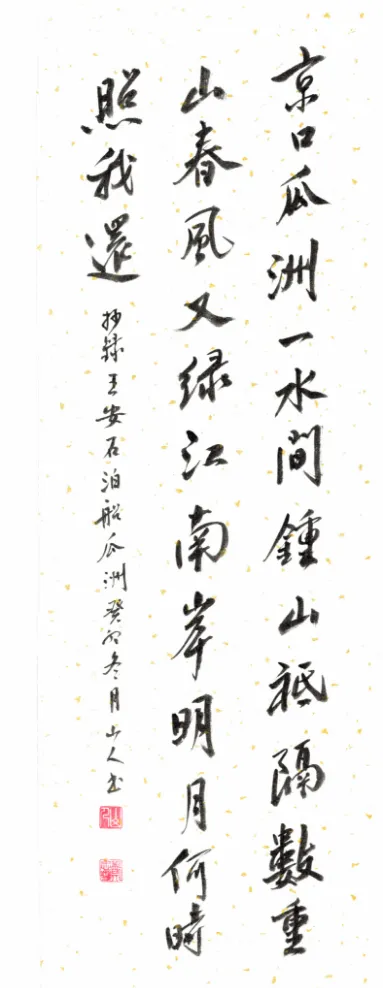 京口瓜洲一水間鍾山祗隔數重
山春風又绿江南岸明月何時
照我還
抄録王安石泊船瓜洲癸卯冬月山人书